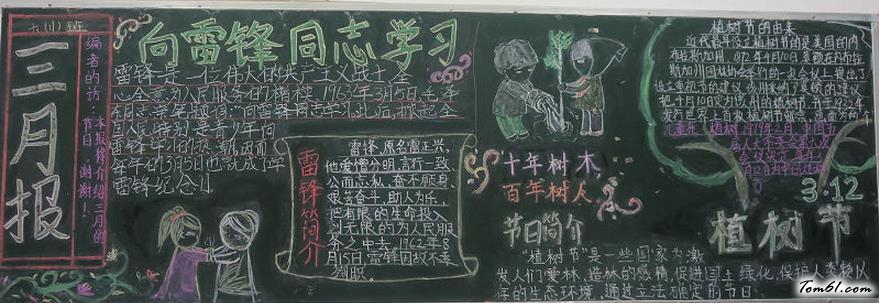 六(1)班
三月报
编者的话:
本报将介绍三月的
节日,谢谢!
向雷锋同志学习
雷锋是一位伟大的共产主义战士,全
心全意为人民服务的楷模,1963年3月5日毛泽
东同志亲笔题词:“向雷锋同志学习”此后,掀起全
国人民特别是青少年向
雷锋学习的热潮因而
每年的3月5日也就成了学
雷锋纪念日
雷锋简介
雷锋,原名雷正兴,
他爱憎分明,言行一致
公而忘私、奋不顾身、
艰苦奋斗,助人为乐,
把有限的生命投入
到无限的为人民服
务之中去,1962年8
月15日雷锋因故不幸
殉职
十年树木,
百年树人
节日简介
“植树节”是一些国家为激
发人们爱林、造林的感情,促进国土绿化,保护人类赖以
生存的生态环境,通过立法确定的节日。
植树节的由来
近代植树节设立植树节的是美国的内
布拉斯加州。1872年4月10日莫顿在内布拉
斯加州园林协会举行的一次会议上,提出了
设立植树节的建议,该州采纳了莫顿的建议
把4月10日定为该州的植树节,并于1932年
发行世界上首枚植树节邮票,画面为两个
儿童在植树。1979年2月,中国五
3.12
植树节
Tom61.com